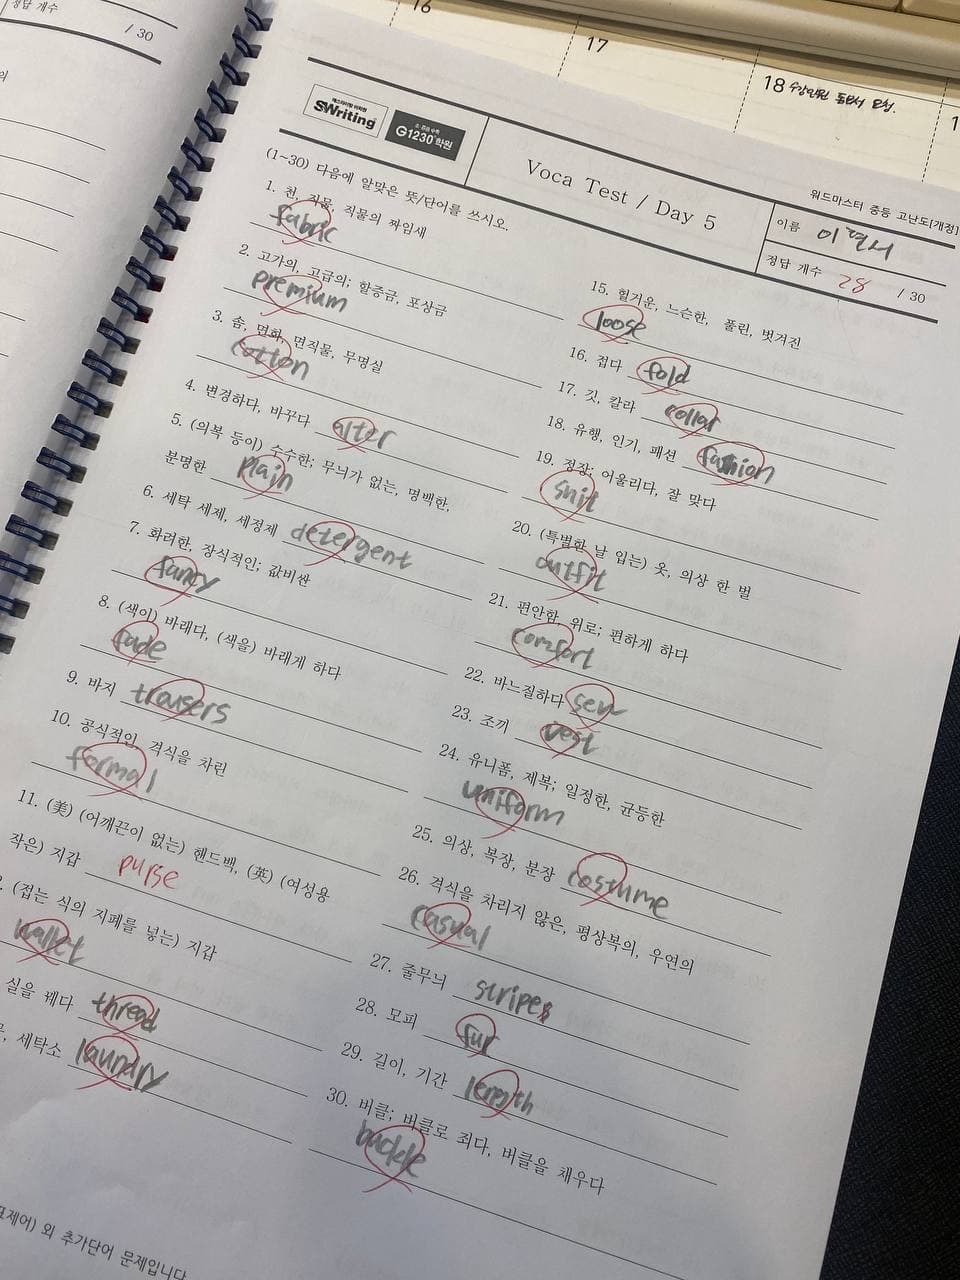 정답 개수
/ 30
16
17
18 수강인원
에스라이팅 어학원
SWriting
G1230 학원
Voca Test / Day 5
워드마스터 중등 고난도[개정]
이름 이연서
정답 개수 28 / 30
(1~30) 다음에 알맞은 뜻/단어를 쓰시오.
1. 천, 직물, 직물의 짜임새
fabric
2. 고가의, 고급의; 할증금, 포상금
premium
3. 솜, 면화, 면직물, 무명실
cotton
4. 변경하다, 바꾸다 alter
5. (의복 등이) 수수한; 무늬가 없는, 명백한,
분명한 plain
6. 세탁 세제, 세정제 detergent
7. 화려한, 장식적인; 값비싼
fancy
8. (색이) 바래다, (색을) 바래게 하다
fade
9. 바지 trousers
10. 공식적인, 격식을 차린
formal
11. (美) (어깨끈이 없는) 핸드백, (英) (여성용
작은) 지갑 purse
(접는 식의 지폐를 넣는) 지갑
wallet
실을 꿰다 thread
세탁소 laundry
15. 헐거운, 느슨한, 풀린, 벗겨진
loose
16. 접다 fold
17. 깃, 칼라 collar
18. 유행, 인기, 패션 fashion
19. 정장; 어울리다, 잘 맞다
suit
20. (특별한 날 입는) 옷, 의상 한 벌
outfit
21. 편안함, 위로; 편하게 하다
comfort
22. 바느질하다 sew
23. 조끼 vest
24. 유니폼, 제복; 일정한, 균등한
uniform
25. 의상, 복장, 분장 costume
26. 격식을 차리지 않은, 평상복의, 우연의
casual
27. 줄무늬 stripes
28. 모피 fur
29. 길이, 기간 length
30. 버클; 버클로 죄다, 버클을 채우다
buckle
표제어) 외 추가단어 문제입니다